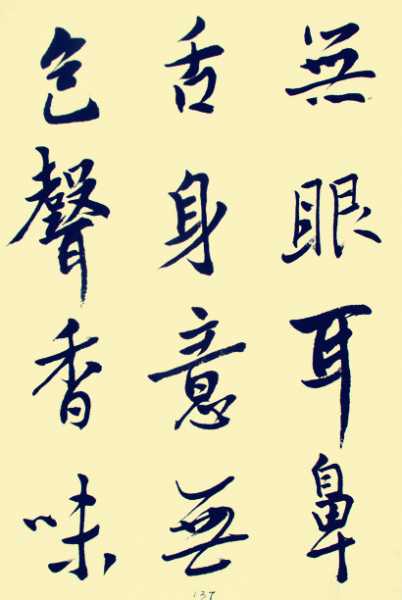 無眼耳鼻
舌身意無
色聲香味
137